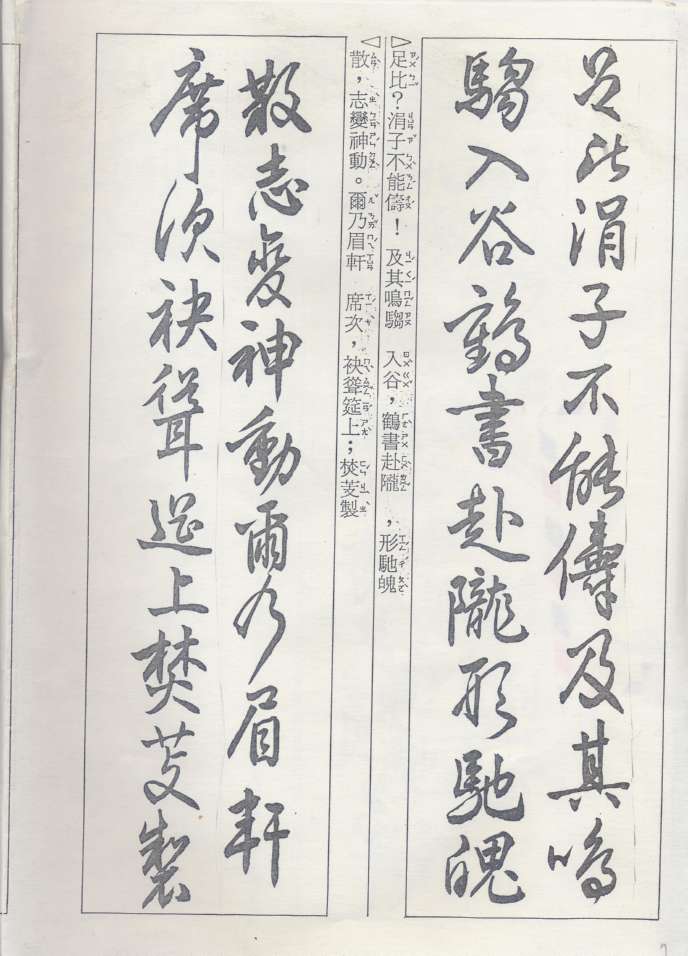 足比涓子不能儔及其鳴
騶入谷鶴書赴隴形馳魄
▷足比？涓子不能儔！及其鳴騶　入谷，鶴書赴隴　，形馳魄
◁散，志變神動。爾乃眉軒　席次，袂聳筵上；焚芰製
散志變神動爾乃眉軒
席次袂聳筵上焚芰製